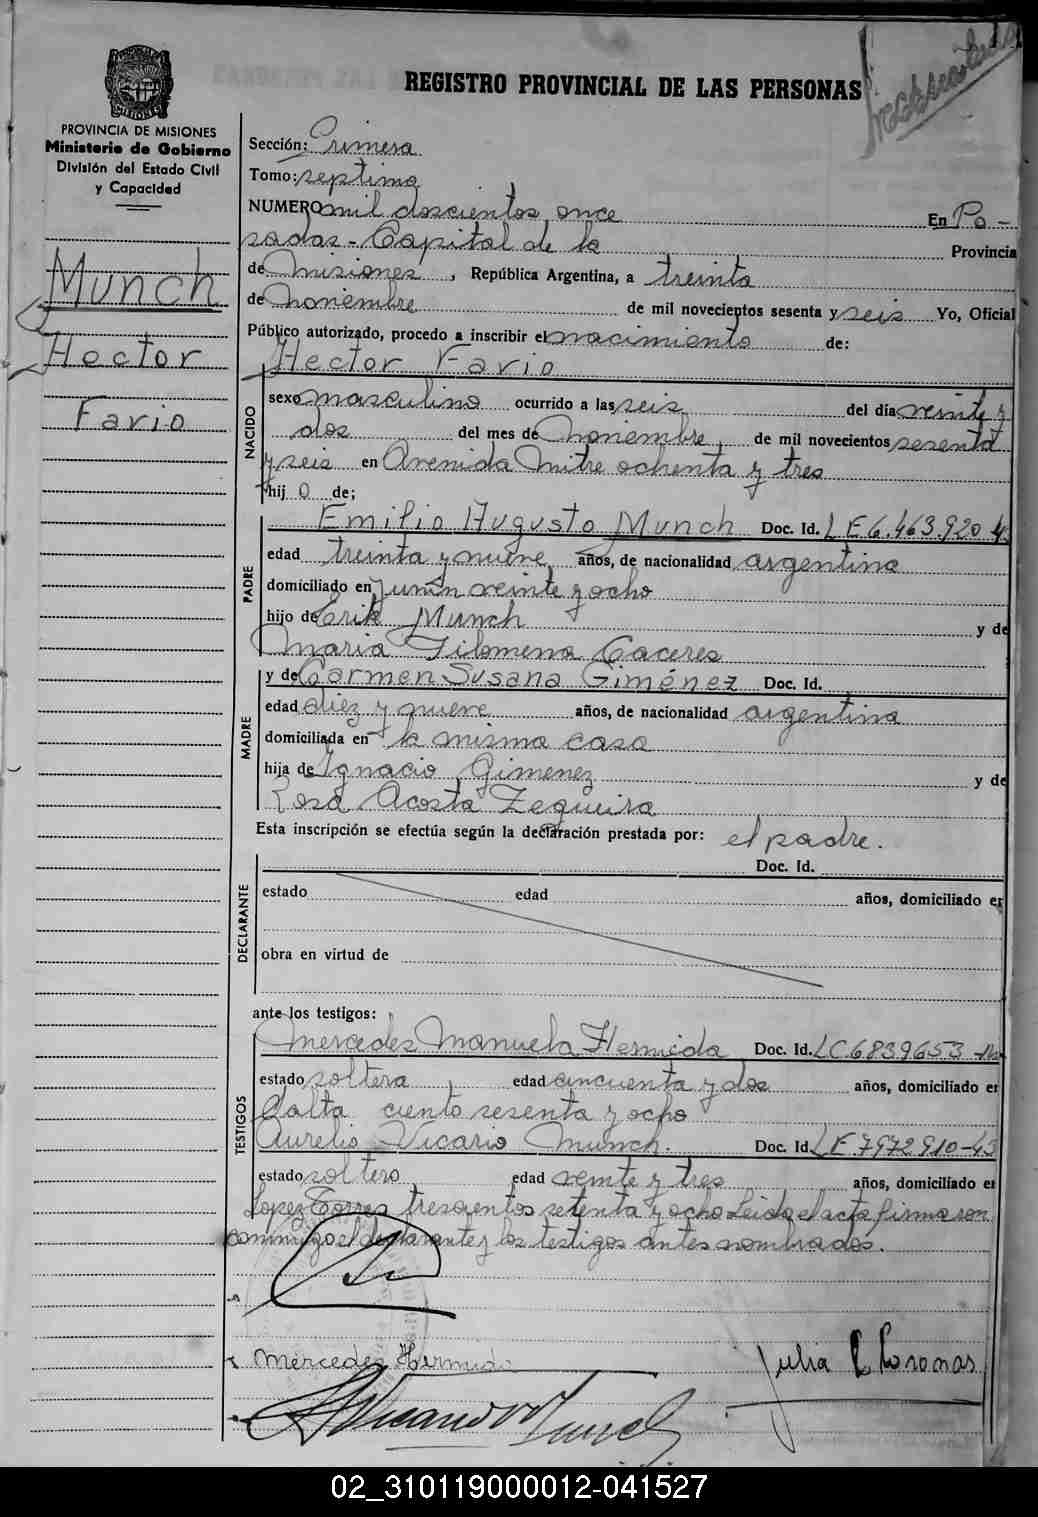 REGISTRO PROVINCIAL DE LAS PERSONAS
PROVINCIA DE MISIONES
Ministerio de Gobierno
División del Estado Civil
y Capacidad
Munch
Hector
Favio
Sección: Primera
Tomo: septimo
NUMERO mil doscientos once En Po-
sadas - Capital de la Provincia
de Misiones, República Argentina, a treinta
de Noviembre de mil novecientos sesenta y seis Yo, Oficial
Público autorizado, procedo a inscribir el nacimiento de:
Hector Favio
NACIDO
sexo masculino ocurrido a las seis del día veinte y
dos del mes de Noviembre, de mil novecientos sesenta
y seis en Avenida Mitre ochenta y tres
hij o de;
PADRE
Emilio Augusto Munch Doc. Id. L E 6.463.920
edad treinta y nueve años, de nacionalidad argentina
domiciliado en Junin veinte y ocho
hijo de Erik Munch y de
Maria Filomena Caceres
MADRE
y de Carmen Susana Giménez Doc. Id.
edad diez y nueve años, de nacionalidad argentina
domiciliada en la misma casa
hija de Ignacio Gimenez y de
Rosa Acosta Zequeira
Esta inscripción se efectúa según la declaración prestada por: el padre.
DECLARANTE
Doc. Id.
estado edad años, domiciliado en
obra en virtud de
ante los testigos:
TESTIGOS
Mercedes Manuela Hermida Doc. Id. L C 6839653
estado soltera, edad cincuenta y dos años, domiciliado en
Salta ciento sesenta y ocho
Aurelio Vicario Munch. Doc. Id. L E 7972910-43
estado soltero edad veinte y tres años, domiciliado en
Lopez Torres trescientos setenta y ocho Leida el acta firma con
conmigo el declarante y los testigos antes nombrados.
Mercedes Hermida
Julia
02_310119000012-041527